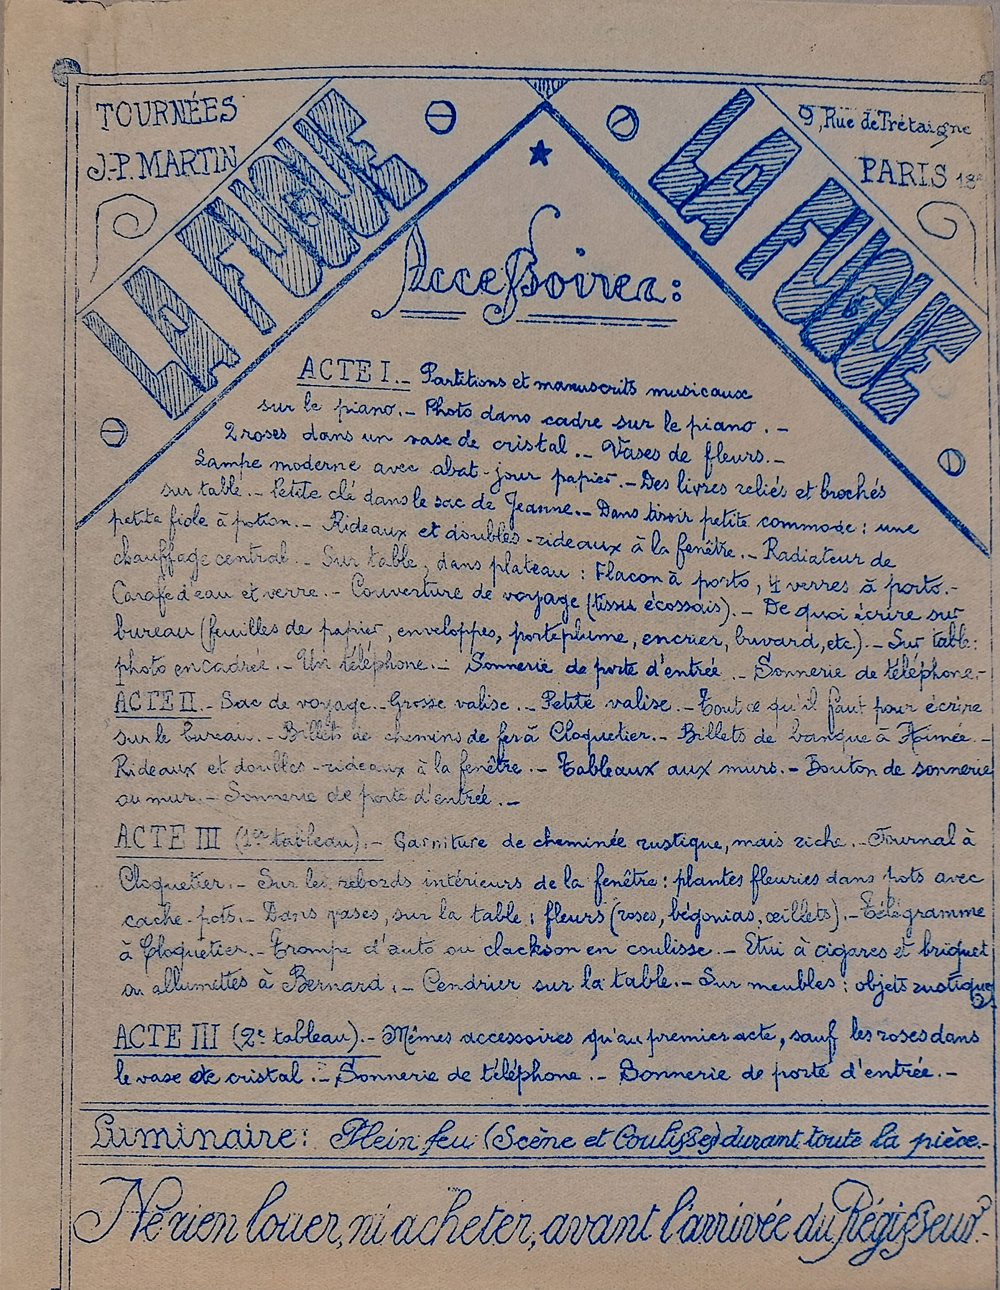 TOURNÉES
J.-P. MARTIN
LA FUGUE
LA FUGUE
9, Rue de Trétaigne
PARIS 18e
Accessoires :
ACTE I._ Partitions et manuscrits musicaux
sur le piano._ Photo dans cadre sur le piano._
2 roses dans un vase de cristal._ Vases de fleurs._
Lampe moderne avec abat-jour papier._ Des livres reliés et brochés
sur table._ Petite clé dans le sac de Jeanne._ Dans tiroir petite commode : une
petite fiole à potion._ Rideaux et doubles-rideaux à la fenêtre._ Radiateur de
chauffage central._ Sur table, dans plateau : Flacon à porto, 4 verres à porto._
Carafe d'eau et verre._ Couverture de voyage (tissu écossais)._ De quoi écrire sur
bureau (feuilles de papier, enveloppes, porteplume, encrier, buvard, etc)._ Sur table :
photo encadrée._ Un téléphone._ Sonnerie de porte d'entrée._ Sonnerie de téléphone._
ACTE II._ Sac de voyage._ Grosse valise._ Petite valise._ Tout ce qu'il faut pour écrire
sur le bureau._ Billets de chemins de fer à Cloquetier._ Billets de banque à Aimée._
Rideaux et doubles-rideaux à la fenêtre._ Tableaux aux murs._ Bouton de sonnerie
au mur._ Sonnerie de porte d'entrée._
ACTE III (1er tableau)._ Garniture de cheminée rustique, mais riche._ Journal à
Cloquetier._ Sur les rebords intérieurs de la fenêtre : plantes fleuries dans pots avec
cache-pots._ Dans vases, sur la table : fleurs (roses, bégonias, œillets)._ Télégramme
à Cloquetier._ Trompe d'auto ou clackson en coulisse._ Etui à cigares et briquet
ou allumettes à Bernard._ Cendrier sur la table._ Sur meubles : objets rustiques
ACTE III (2e tableau)._ Mêmes accessoires qu'au premier acte, sauf les roses dans
le vase de cristal._ Sonnerie de téléphone._ Sonnerie de porte d'entrée._
Luminaire : Plein feu (Scène et Coulisses) durant toute la pièce._
Ne rien louer, ni acheter, avant l'arrivée du Régisseur._